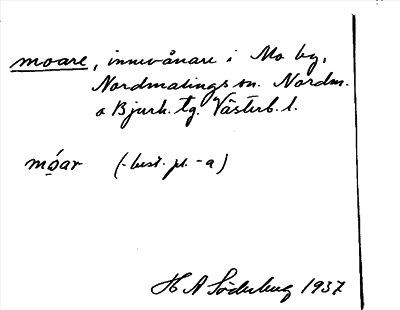 moare, innevånare i Mo by,
Nordmalings sn. Nordm.
o Bjurh. tg. Västerb. l.
mǫ́ar (-best. pl. -a)
H A Söderberg 1937